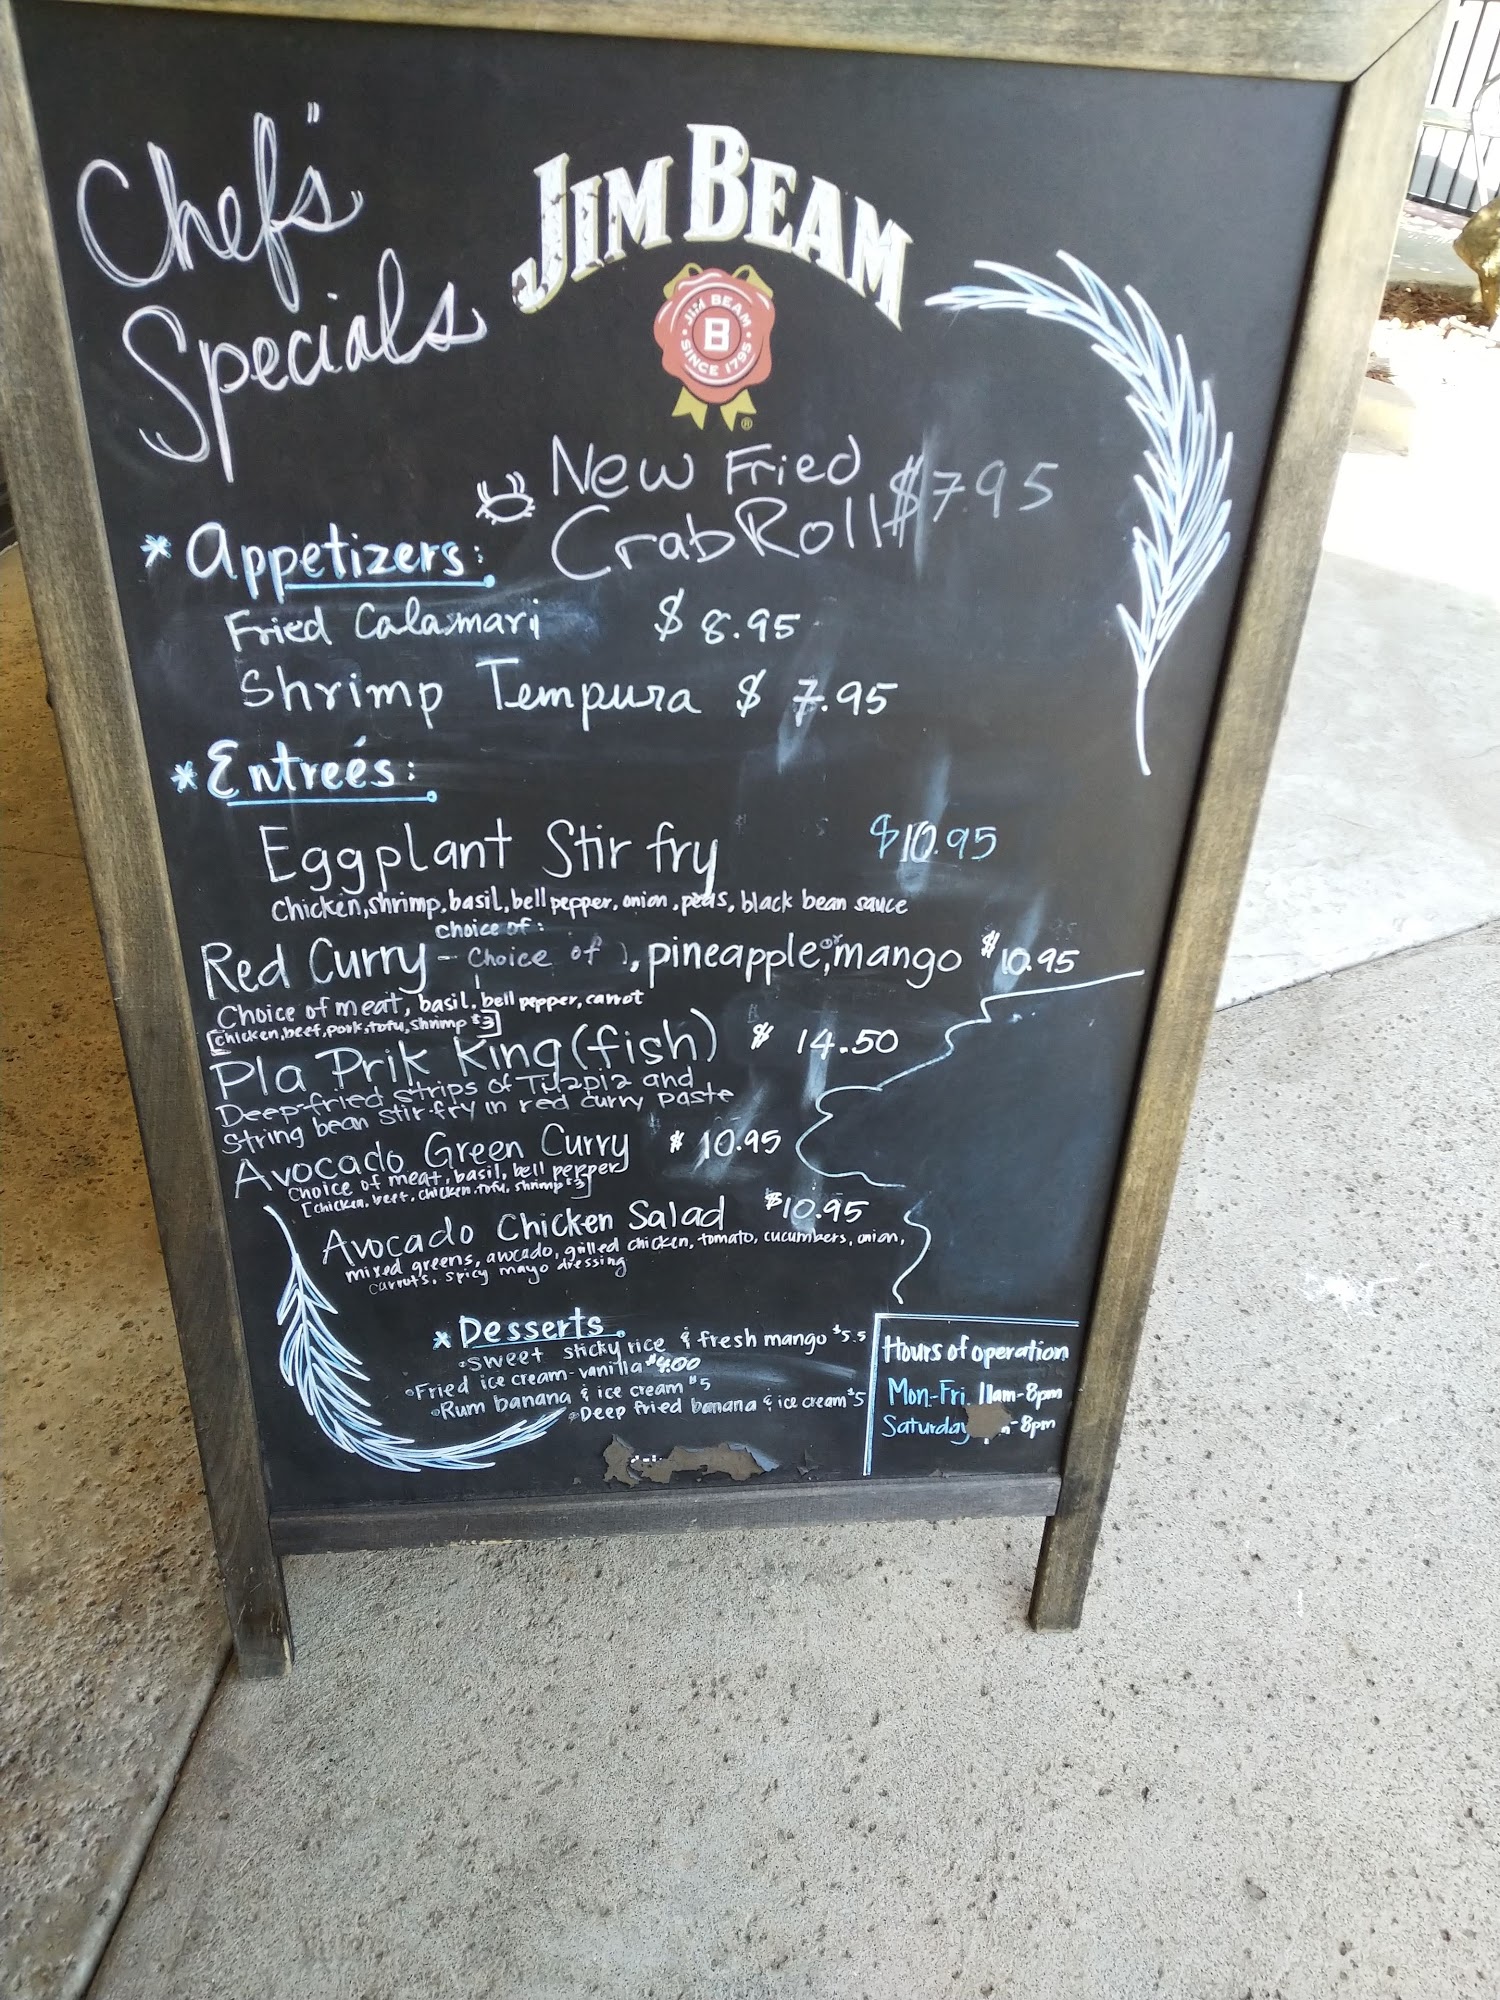 Chefs"
Specials
JIM BEAM
JIM BEAM
B
SINCE 1795
New Fried
Crab Roll $7.95
* Appetizers:
Fried Calamari $8.95
Shrimp Tempura $7.95
* Entreés:
Eggplant Stir fry $10.95
chicken, shrimp, basil, bell pepper, onion, peas, black bean sauce
choice of:
Red Curry - choice of , pineapple, or mango $10.95
Choice of meat, basil, bell pepper, carrot
[chicken, beef, pork, tofu, shrimp $3]
Pla Prik King (fish) $14.50
Deep-fried strips of Tilapia and
String bean stir-fry in red curry paste
Avocado Green Curry $10.95
choice of meat, basil, bell pepper
[chicken, beef, chicken, tofu, shrimp $3]
Avocado Chicken Salad $10.95
mixed greens, avocado, grilled chicken, tomato, cucumbers, onion,
carrots, spicy mayo dressing
* Desserts
Sweet sticky rice & fresh mango $5.5
Fried ice cream-vanilla $4.00
Rum banana & ice cream $5
Deep fried banana & ice cream $5
Hours of operation
Mon-Fri 11am-8pm
Saturday -8pm